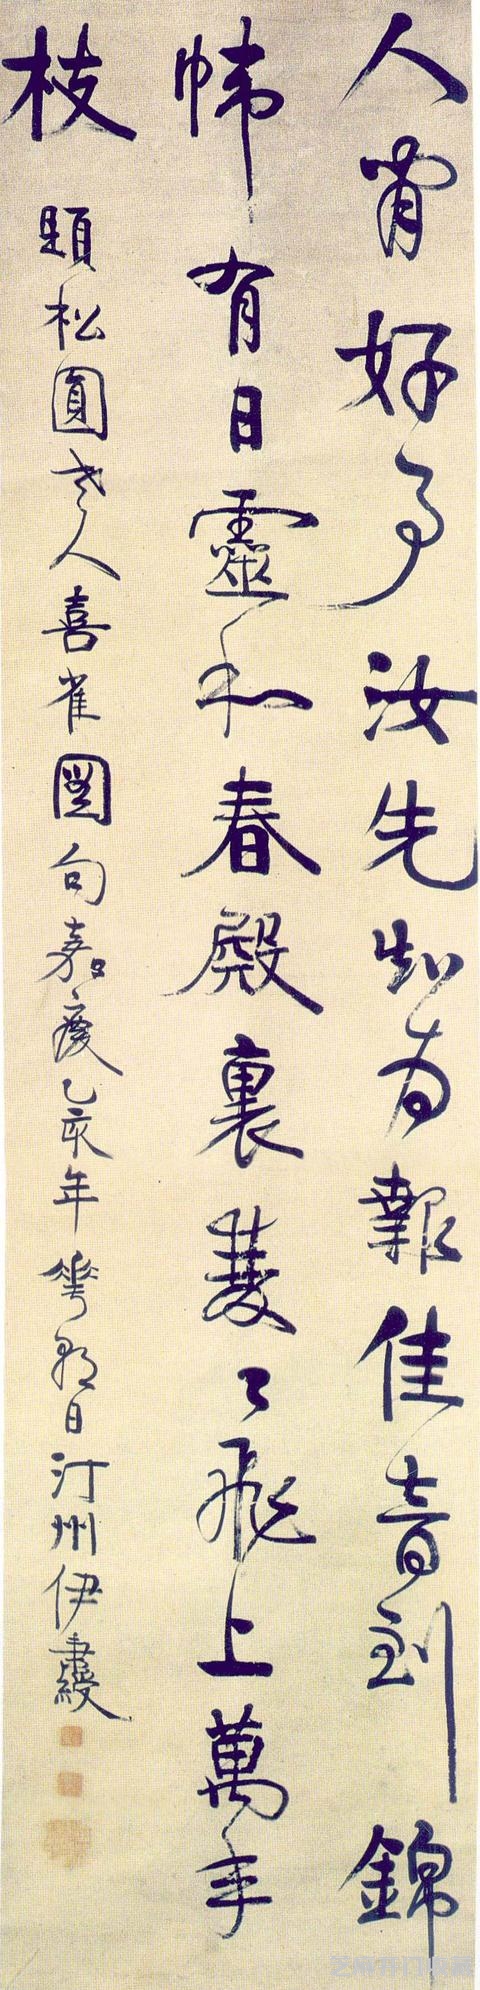 人閒好事汝先知為報佳音到錦
幃有日靈和春殿裏雙々飛上萬年
枝 題松圓老人喜雀圖句嘉慶乙亥年華朝日汀州伊秉綬